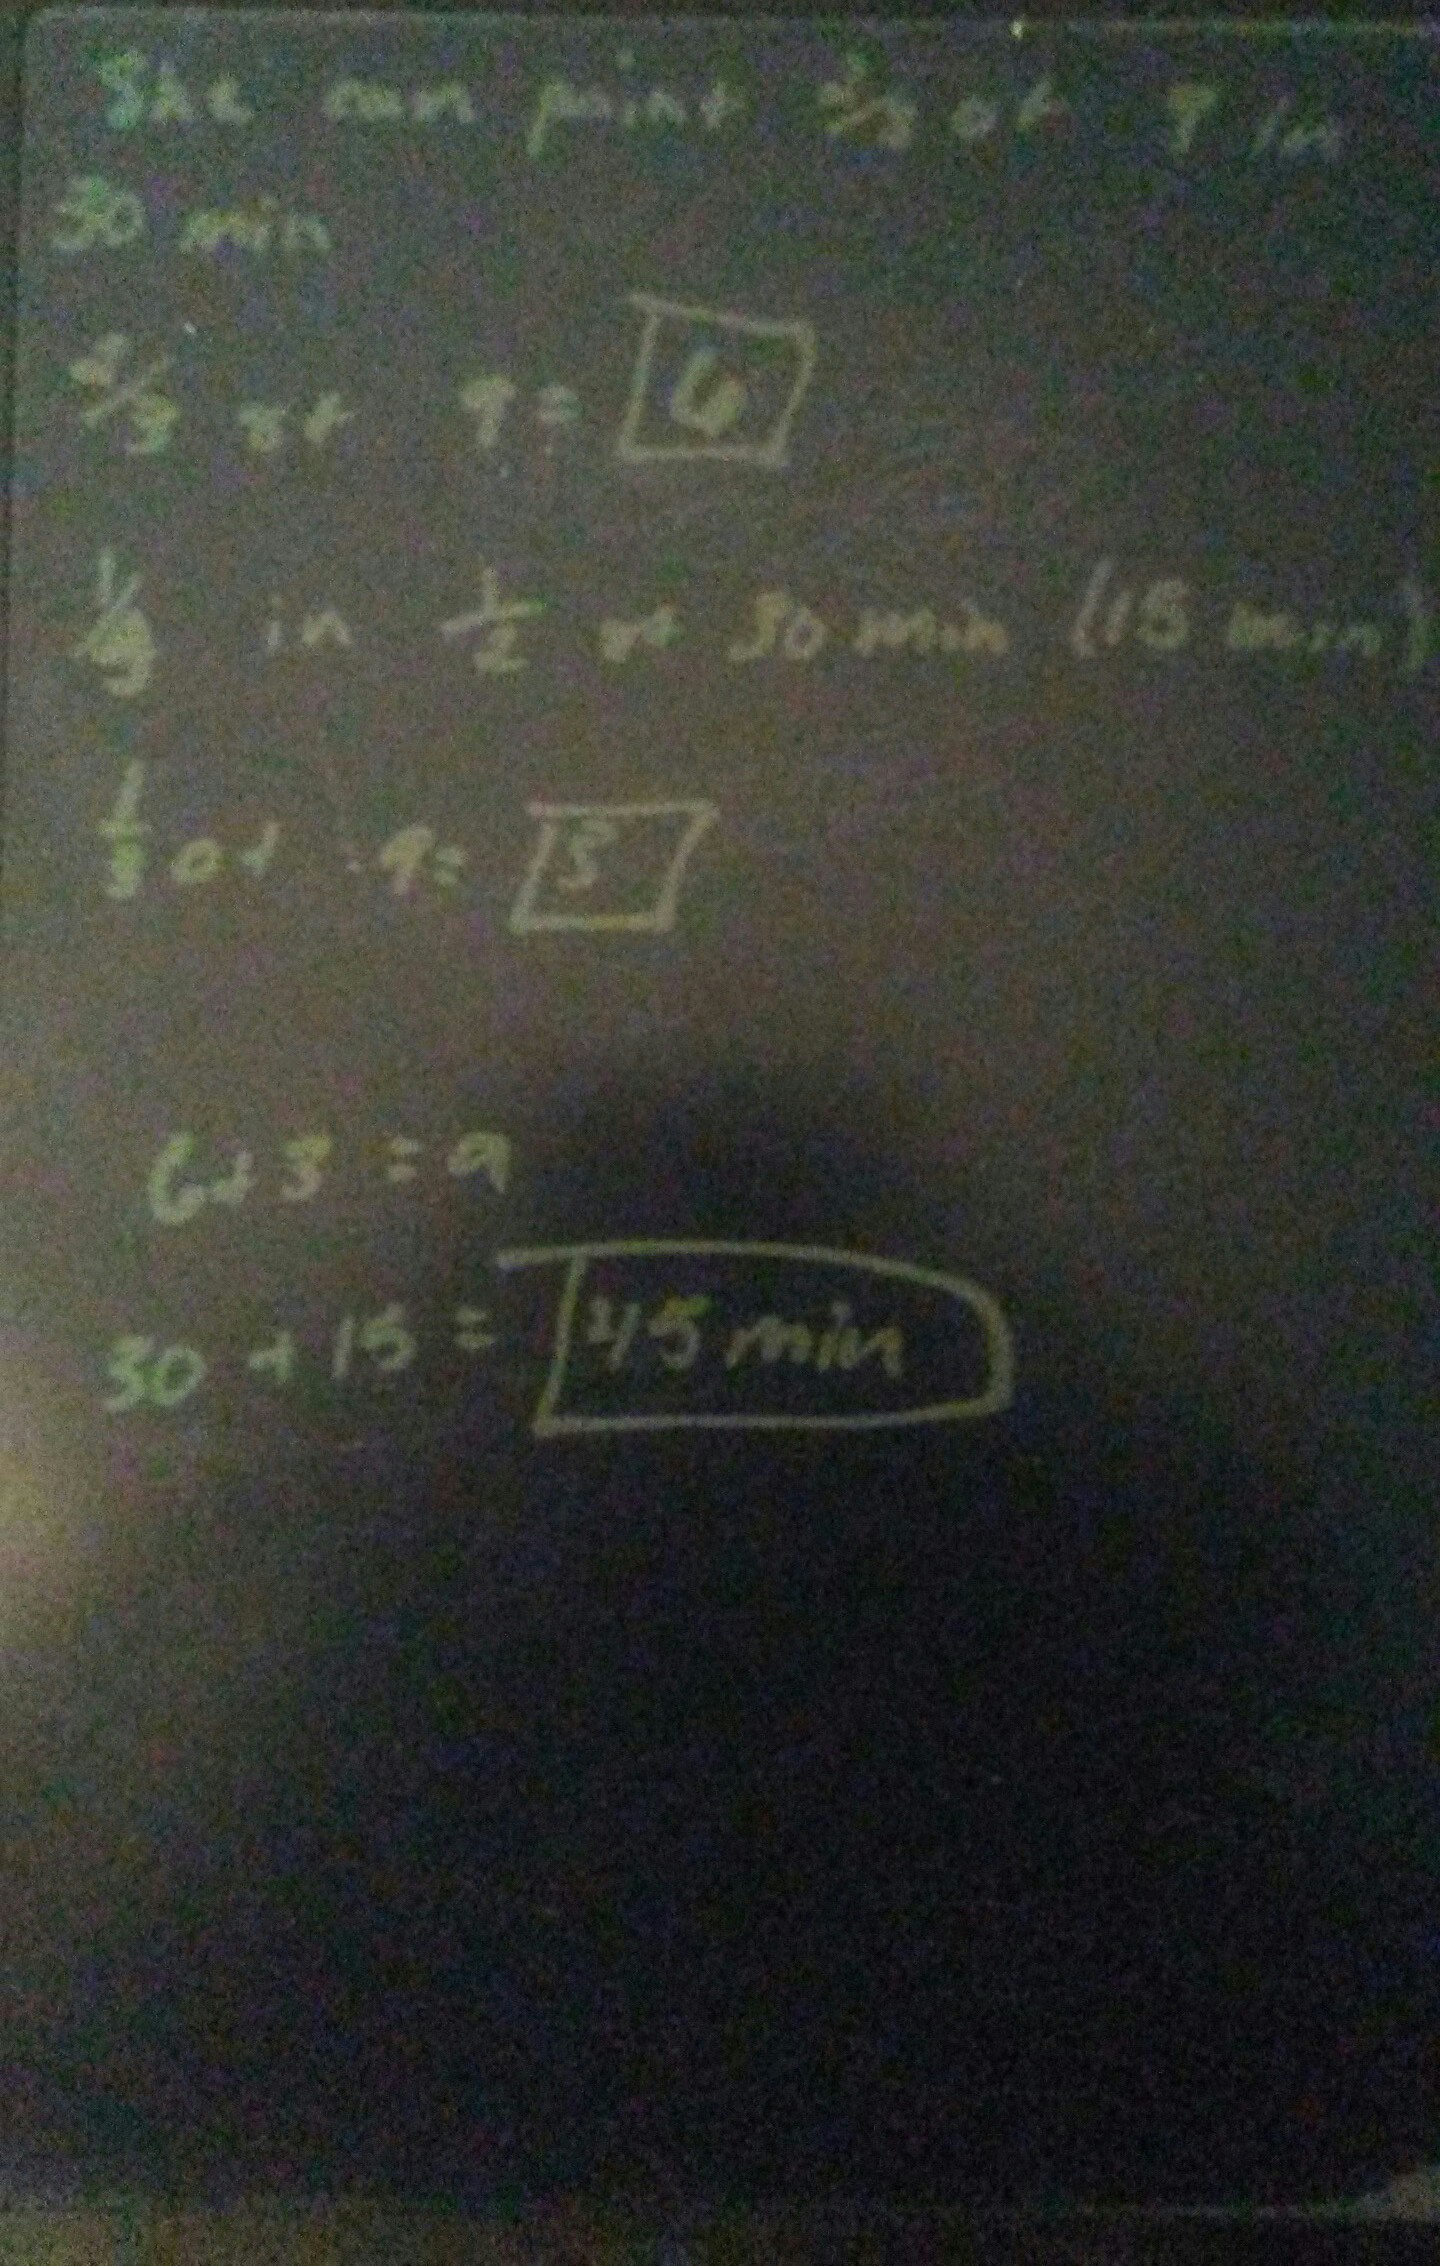 She can paint 2/3 of 9 in
30 min
2/3 of 9 = 6
1/3 in 1/2 of 30 min (15 min)
1/3 of 9 = 3
6+3 = 9
30 + 15 = 45 min